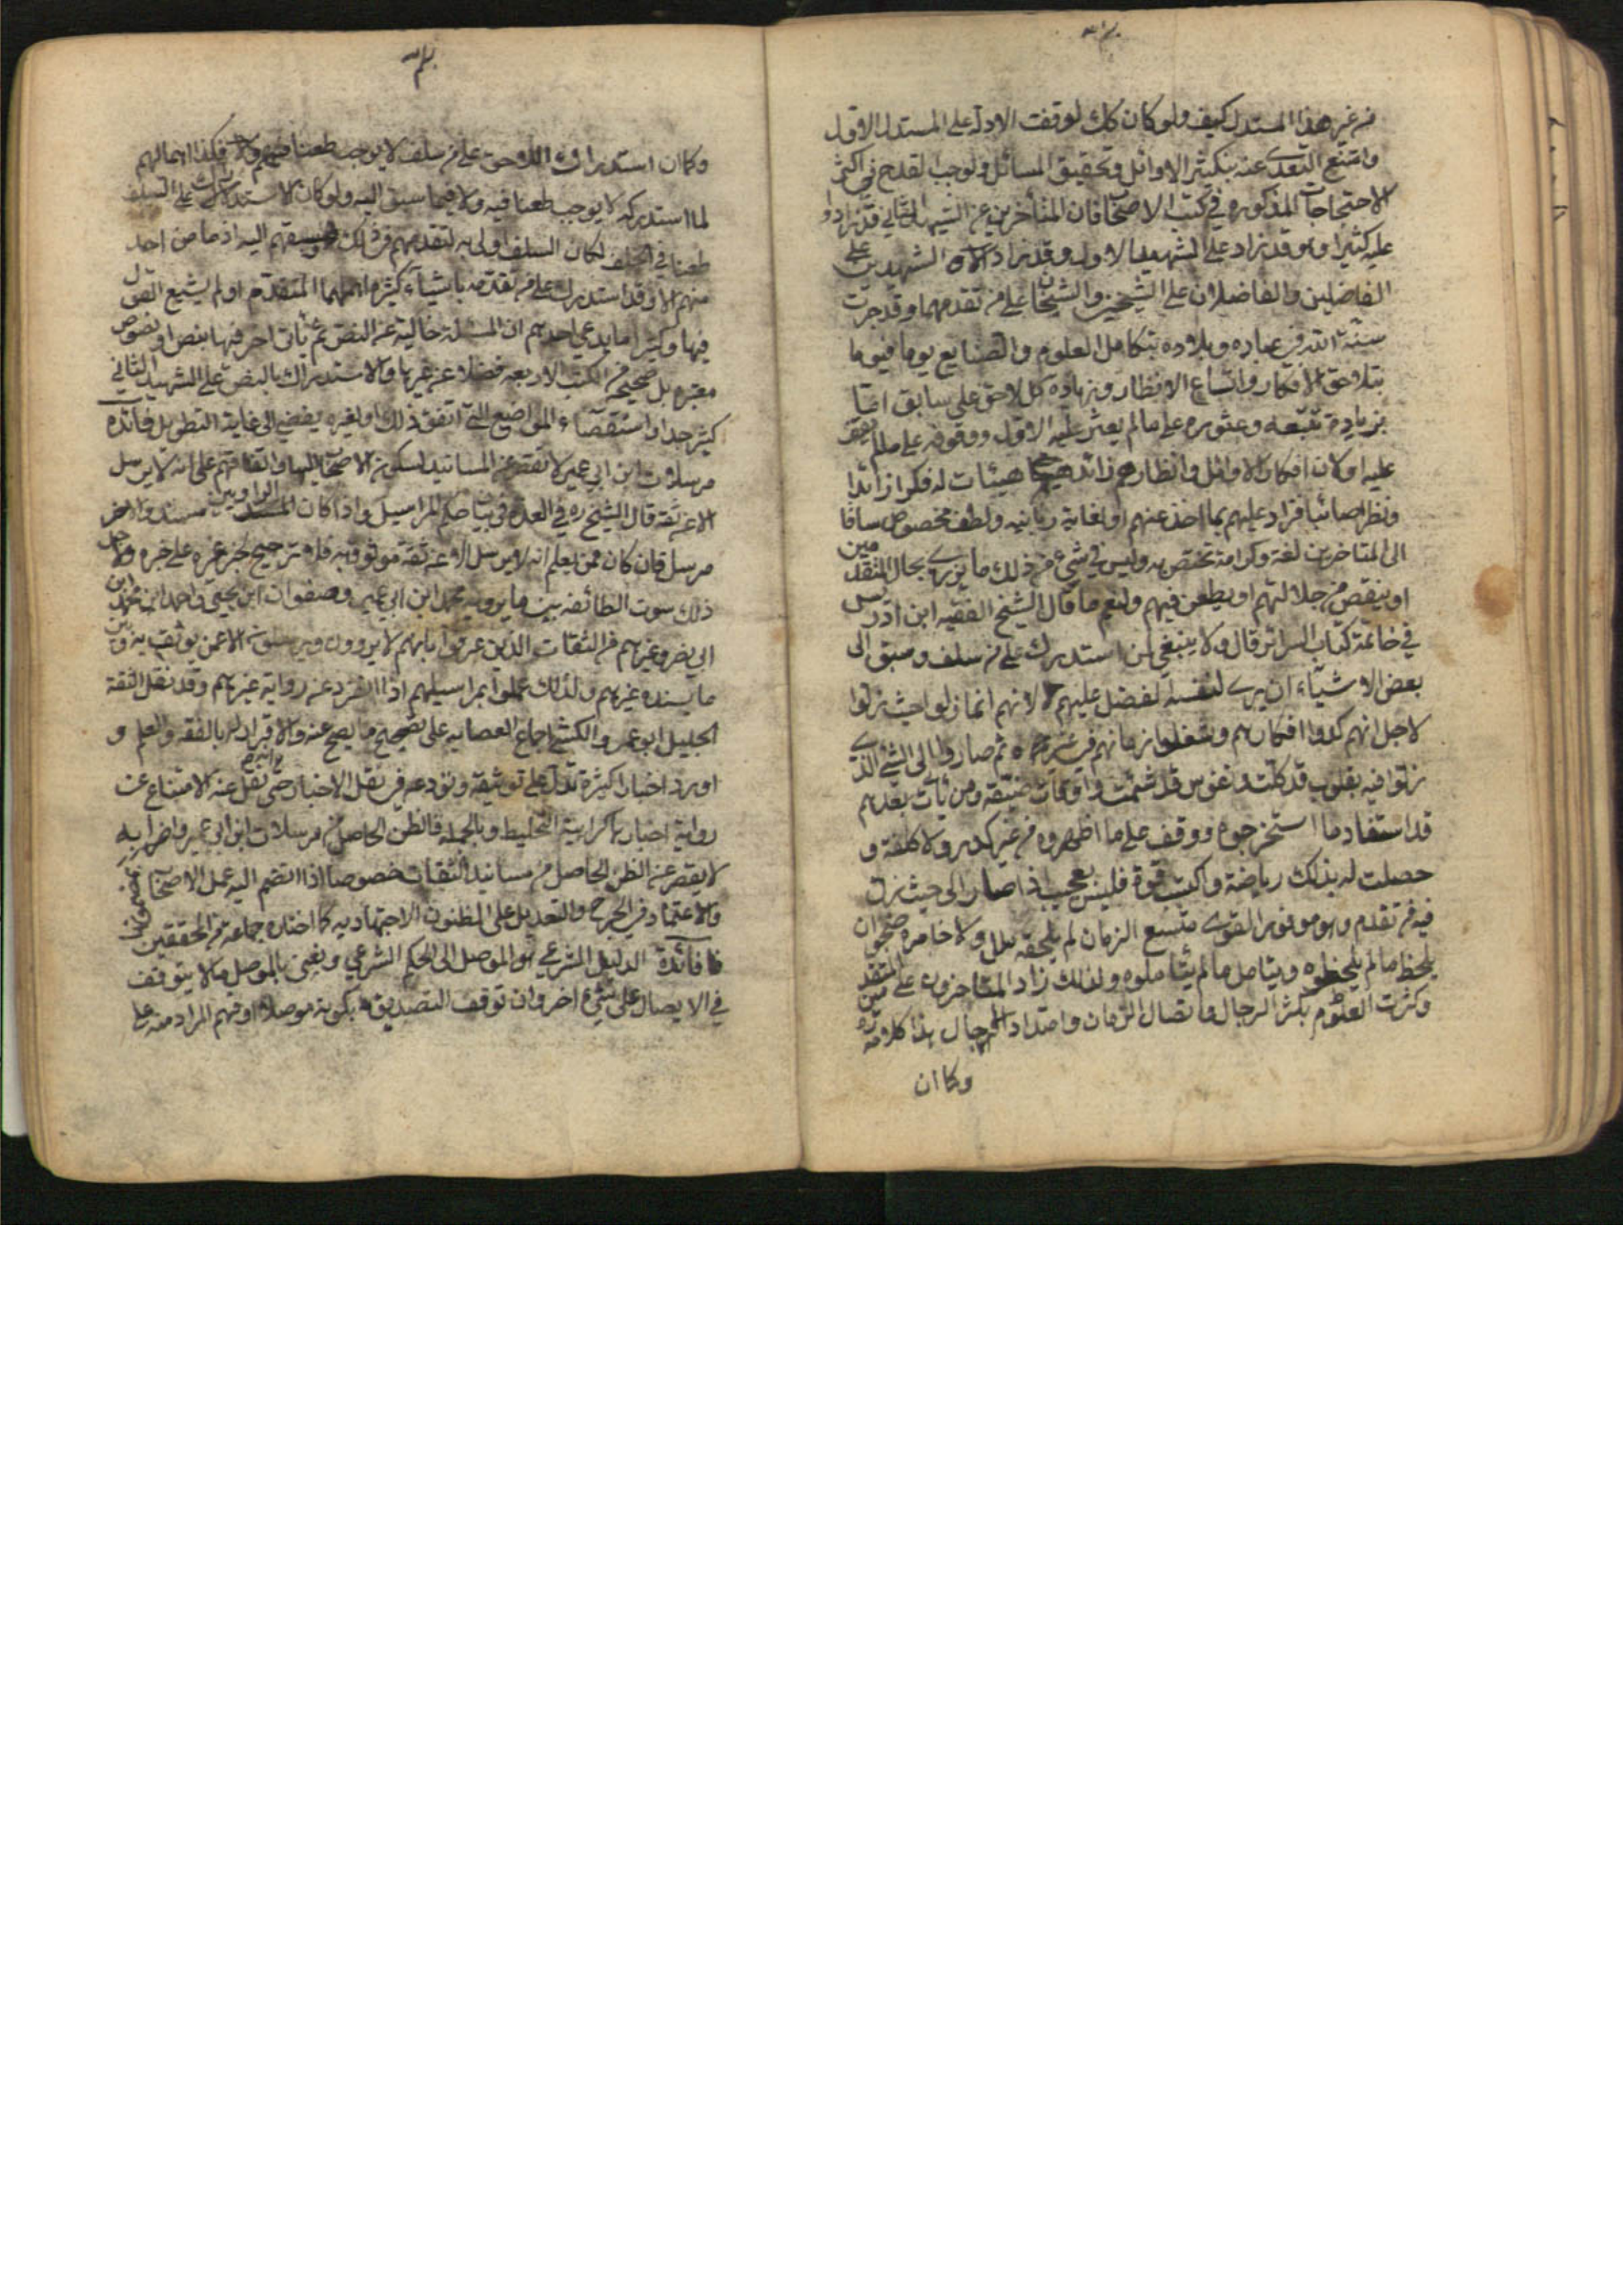 من غير هذا المستدل كيف ولو كان كك لوقفت الادلة على المستدل الاول
وامتنع التعدى عنه بتكثير الاوائل وتحقيق المسائل ولوجب القدح فى اكثر
الاحتجاجات المذكوره فى كتب الاصحاب فان المتأخرين عن الشهيد الثانى قد زادوا
عليه كثيرا وهو قد زاد على الشهيد الاول وقد زاد الشهيدين على
الفاضلين والفاضلان على الشيخين والشيخان على من تقدمهما وقد جرت
سنة الله فى عباده وبلاده بتكامل العلوم والصنايع يوما فيوما
بتلاحق الافكار واتساع الانظار وزياده كل لاحق على سابق اما
بزيادة تتبعه وعثوره على مالم يعثر عليه الاول ووقوفه على مالم يقف
عليه او لان افكار الاوائل وانظارهم هيئات له فكرا زائدا
ونظرا صائبا فزاد عليهم بما اخذ عنهم او لعناية ربانيه ولطف مخصوص ساقا
الى المتاخرين لغة وكرامة تختص به وليس فى شئ من ذلك ما يزرى بحال المتقدمين
او ينقص من جلالتهم او يطعن فيهم ولنعم ما قال الشيخ الفقيه ابن ادريس
فى خاتمة كتاب السرائر قال ولا ينبغى لمن استدرك على من سلف وسبق الى
بعض الاشياء ان يرى لنفسه لفضل عليهم لانهم انما زلوا حيث زلوا
لاجل انهم كدوا افكارهم وشغلوا زمانهم فى غيره ثم صاروا الى الشئ الذى
زلوا فيه بقلوب قد كلت ونفوس قد سئمت واوقات ضيقه ومن يأت بعدهم
قد استفاد ما استخرجوه ووقف على ما اظهروه من غير كدر ولا كلفة و
حصلت له بذلك رياضة واكتسب قوة فليس بعجيب اذا صار الى حيث زل
فيه من تقدم وهو موفور القوى متسع الزمان لم يلحقه ملل ولا خامره ضجر ان
يلحظ مالم يلحظوه ويتامل مالم يتأملوه ولذلك زاد المتاخرون على المتقدمين
وكثرت العلوم بكثر الرجال واتصال الزمان وامتداد الاجال هذا كلامه ره
وكما ان
وكما ان استدراك اللاحق على من سلف لا يوجب طعنا فيهم فكذا اهمالهم
لما استدركه لا يوجب طعنا فيه ولا فيما سبق اليه ولو كان الاستدراك على السلف
طعنا فى الخلف لكان السلف اولى به لتقدمهم فى ذلك وسبقهم اليه اذ ما من احد
منهم الا وقد استدرك على من تقدمه باشياء كثيره اهملها المتقدم او لم يشبع القول
فيها وكثيرا ما يدعى احدهم ان المسئلة خالية عن النص ثم يأتى اخر فيها بنص او نصوص
معتبره بل صحيحه من الكتب الاربعه فضلا عن غيرها والاستدراك بالنص على الشهيد الثانى
كثير جدا واستقصاء المواضع التى اتفق ذلك ولغيره يفضى الى غاية التطويل فائدة
مرسلات ابن ابى عمير لا تقصر عن المسانيد لسكون الاصحاب اليها واتفاقهم على انه لا يرسل
الا عن ثقة قال الشيخ ره فى العدة فى بيان حكم المراسيل واذا كان احد الراويين مسندا والاخر
مرسل فان كان ممن يعلم انه لا يرسل الا عن ثقة موثوق به فلا ترجيح لخبر غيره على خبره ولاجل
ذلك سوت الطائفه بين ما يرويه محمد ابن ابى عمير وصفوان ابن يحيى واحمد ابن محمد ابن
ابى نصر وغيرهم من الثقات الذين عرفوا بانهم لا يروون ويرسلون الا عمن يوثق به وبين
ما يسنده غيرهم ولذلك عملوا بمراسيلهم اذا انفرد عنه رواية غيرهم وقد نقل الثقة
الجليل ابو عمر والكشى اجماع العصابه على تصحيح ما يصح عنه والاقرار له بالفقه والعلم و
اورد اخبارا كثيرة تدل على توثيقه وتورعه فى نقل الاخبار حتى نقل عنه الامتناع عن
رواية اخبار كراهية التخليط وبالجمله فالظن الحاصل من مرسلات ابن ابى عمير واضرابه
لا يقصر عن الظن الحاصل من مسانيد الثقات خصوصا اذا انضم اليه عمل الاصحاب
والاعتماد فى الجرح والتعديل على الظنون الاجتهاديه كما اختاره جماعه من المحققين
فائدة الدليل الشرعى هو الموصل الى الحكم الشرعى ونعنى بالموصل مالا يتوقف
فى الايصال على شئ اخر وان توقف التصديق بكونه موصلا او فهم المراد منه على